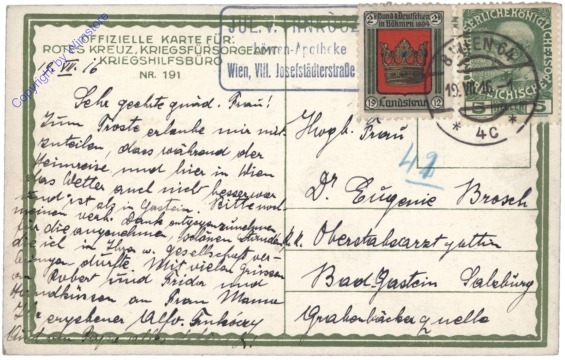 OFFIZIELLE KARTE FÜR:
ROTES KREUZ, KRIEGSFÜRSORGEAMT
KRIEGSHILFSBÜRO
NR. 191
18. VII. 16
Sehr geehrte gnäd. Frau!
Zum Troste erlaube mir mit-
zuteilen, dass während der
Heimreise und hier in Wien
das Wetter auch nicht besser war
und ist als in Gastein. Bitte noch
meinen verb. Dank entgegenzunehmen
für die angenehmen, schönen Stunden
die ich in Ihrer w. Gesellschaft ver-
bringen durfte. Mit vielen Grüssen
an Robert und Frida und
Handküssen an Frau Mama
Ihr ergebener
JUL. V.
Löwen-Apotheke
Wien, VIII. Josefstädterstraße
Bund d. Deutschen
in Böhmen 1894
2 2
Landskron
19 12
8 WIEN 64
19. VII. 16
* 4c *
5 5
42
Hochg. Frau
Dr. Eugenie Brosch
k.k. Oberstabsarztgattin
Bad Gastein Salzburg
Grabenbäckerquelle
Copyright by Winstore